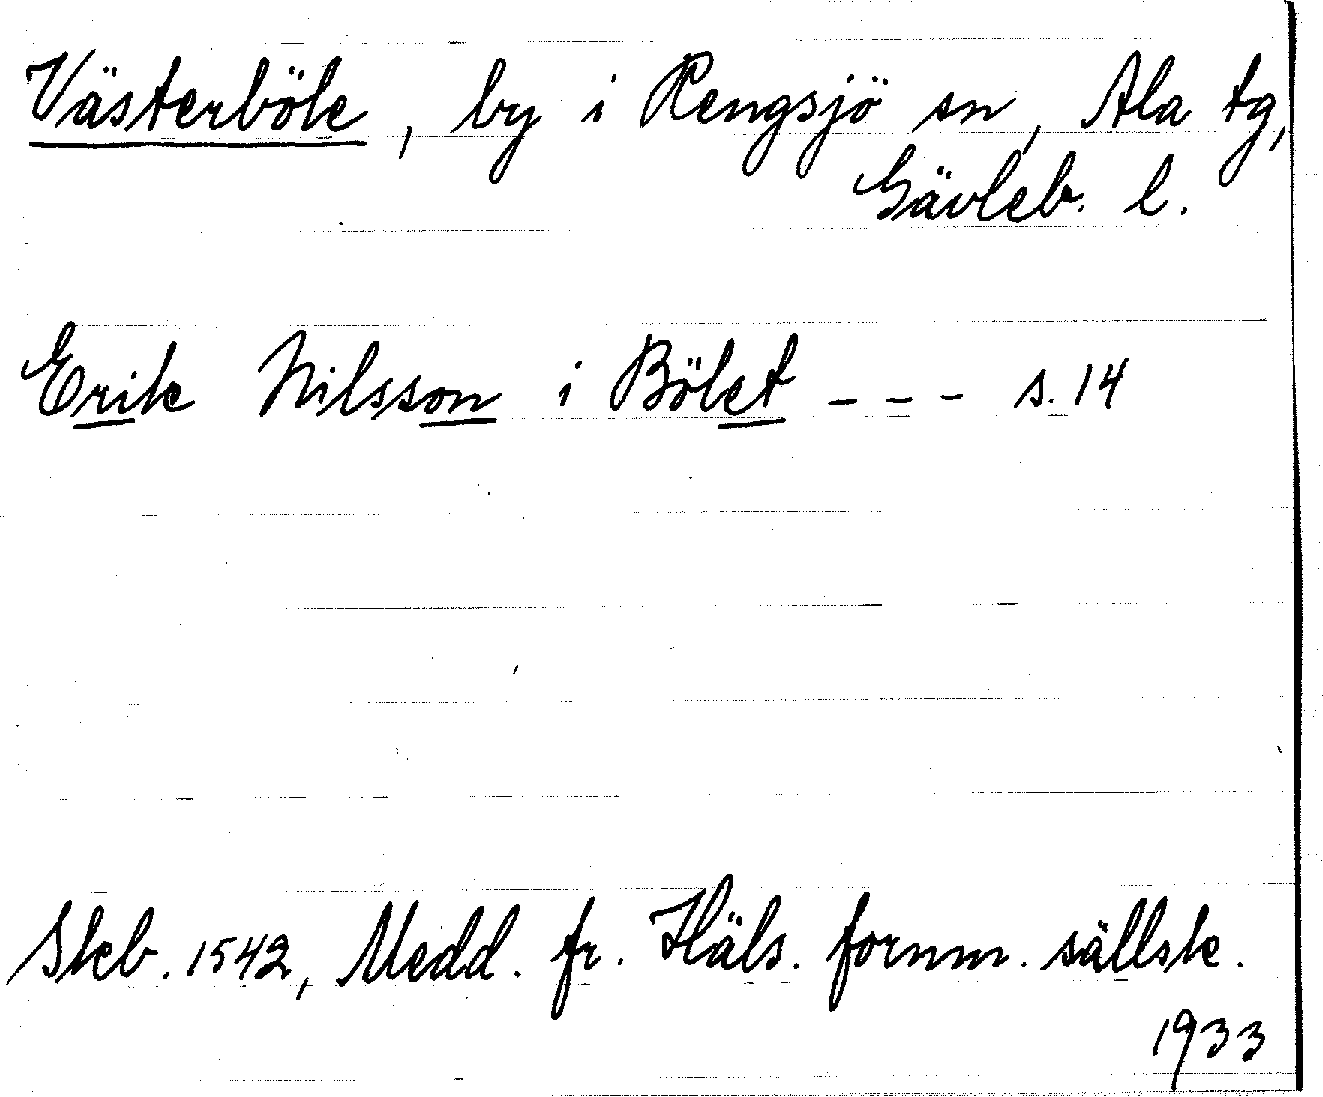 Västerböle, by i Rengsjö sn, Ala tg,
Gävleb. l.
Erik Nilsson i Bölet - - - s. 14
Skb. 1542, Medd. fr. Häls. fornm. sällsk.
1933